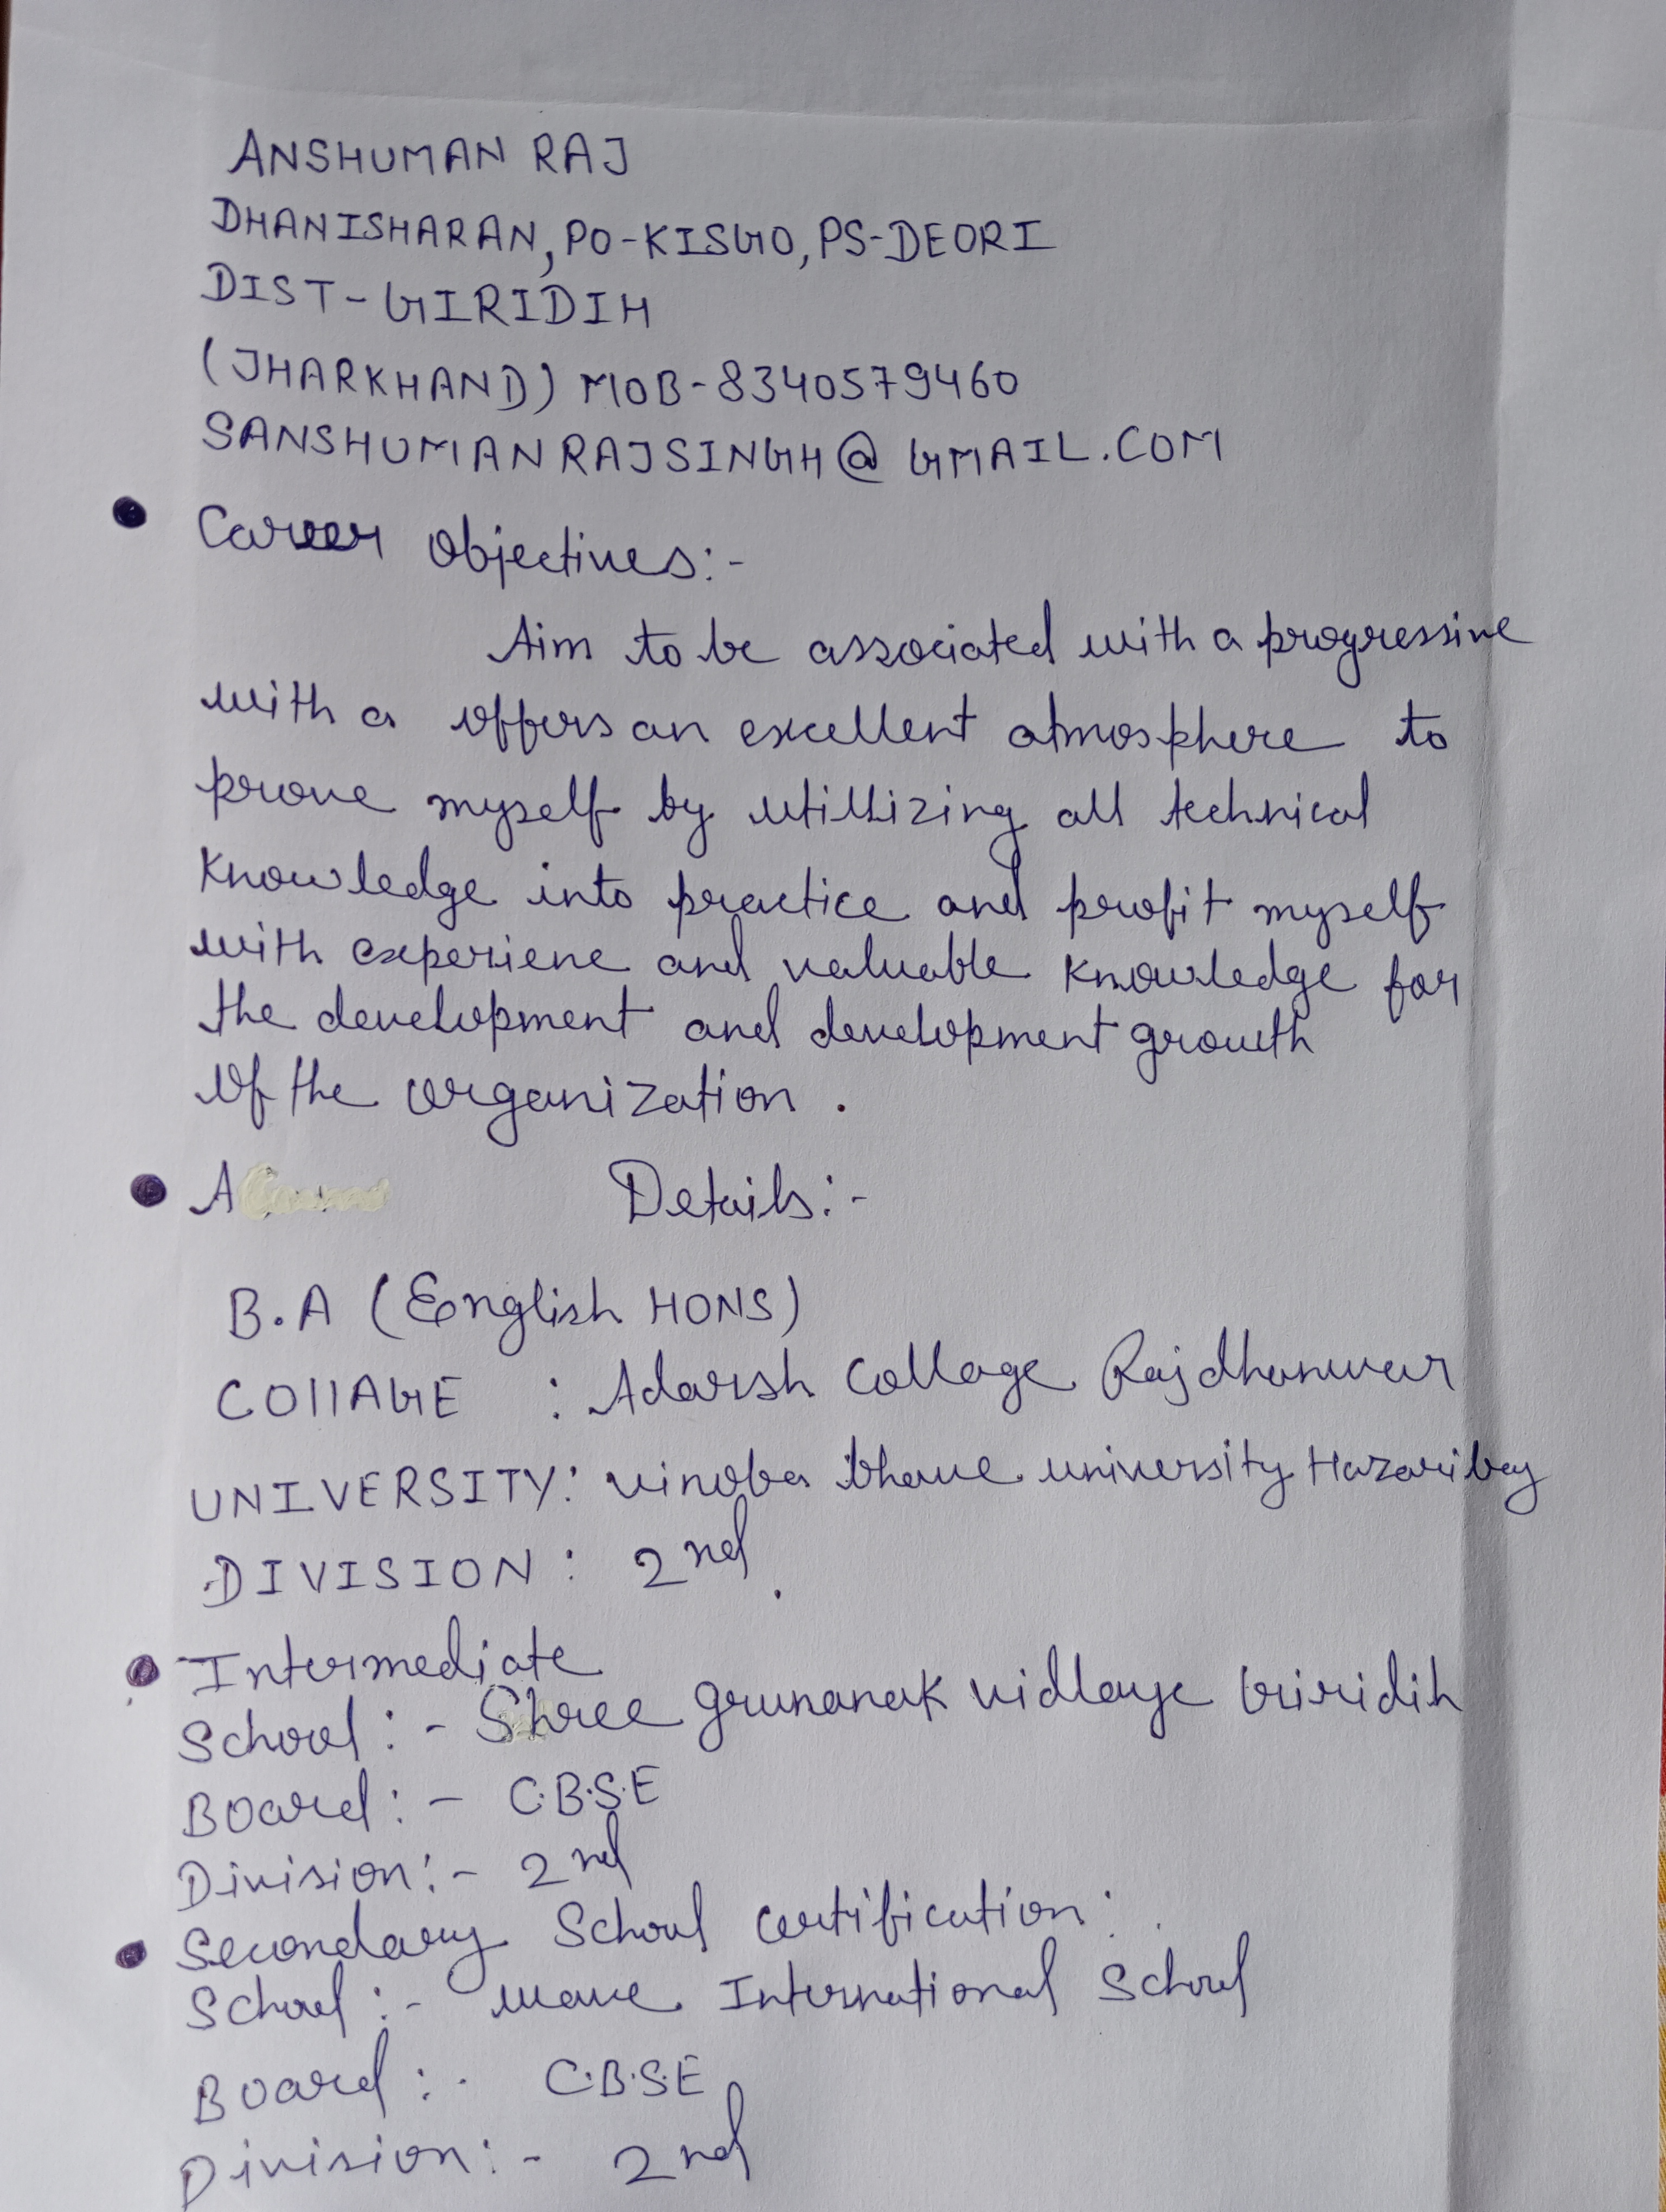 ANSHUMAN RAJ
DHANISHARAN, PO-KISGO, PS-DEORI
DIST-GIRIDIH
(JHARKHAND) MOB-8340579460
SANSHUMANRAJSINGH@GMAIL.COM
Career Objectives:-
Aim to be associated with a progressive
with a offers an excellent atmosphere to
prove myself by utillizing all technical
Knowledge into practice and profit myself
with experiene and valuable knowledge for
the development and development growth
of the organization.
A Details:-
B.A (English HONS)
COllAGE : Adarsh Collage Rajdhanwar
UNIVERSITY: vinoba bhave university Hazaribag
DIVISION: 2nd.
Intermediate
School:- Shree grunanak vidlaye Giridih
Board:- C.B.S.E
Division:- 2nd
Secondary School certification:
School:- wave International School
Board:- C.B.S.E
Division:- 2nd